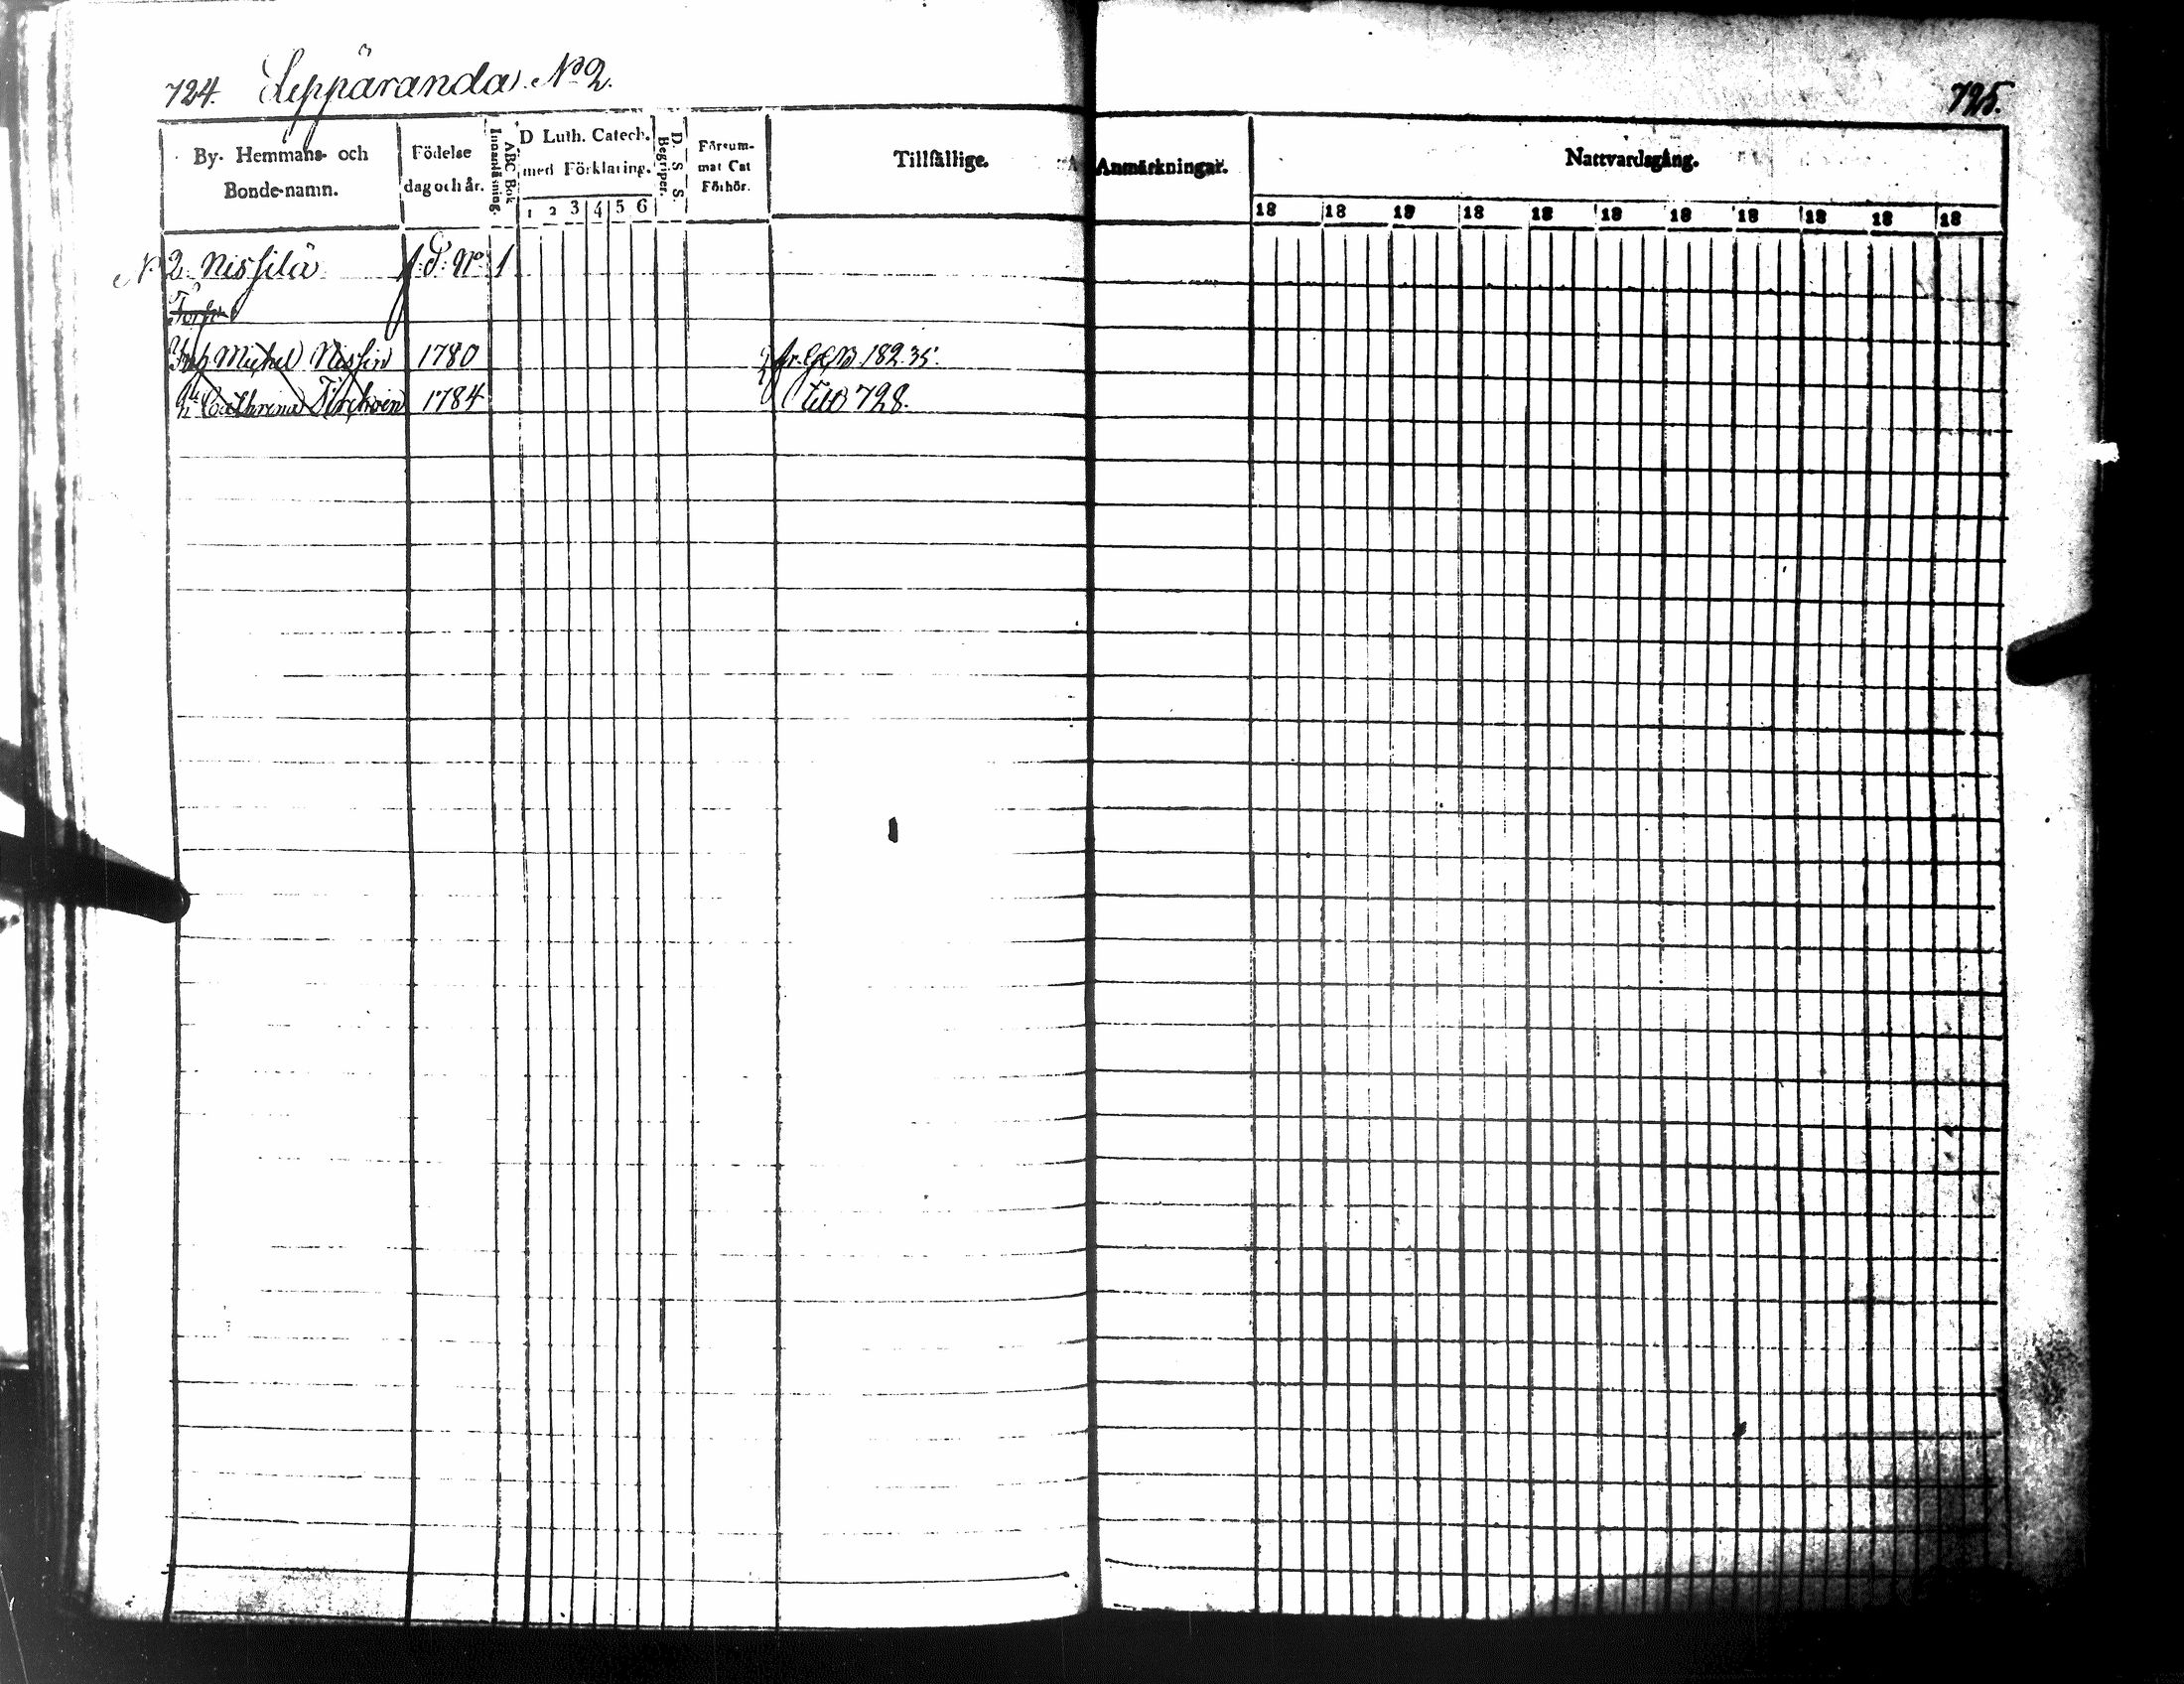 724. Leppäranda. No 2.
725.
By- Hemmans- och Bonde-namn.
Födelse dag och år.
ABC Bok Innanläsning.
D Luth. Catech. med Förklaring.
1 2 3 4 5 6
D. S. S. Begriper.
Försummat Cat Förhör.
Tillfällige.
Anmärkningar.
Nattvardsgång.
18 18 18 18 18 18 18 18 18 18 18
No 2. Nissilä f. d. No 1
Torp.
Inh Michel Nissin 1780 182. 35.
h. Cathrina 1784 till 728.